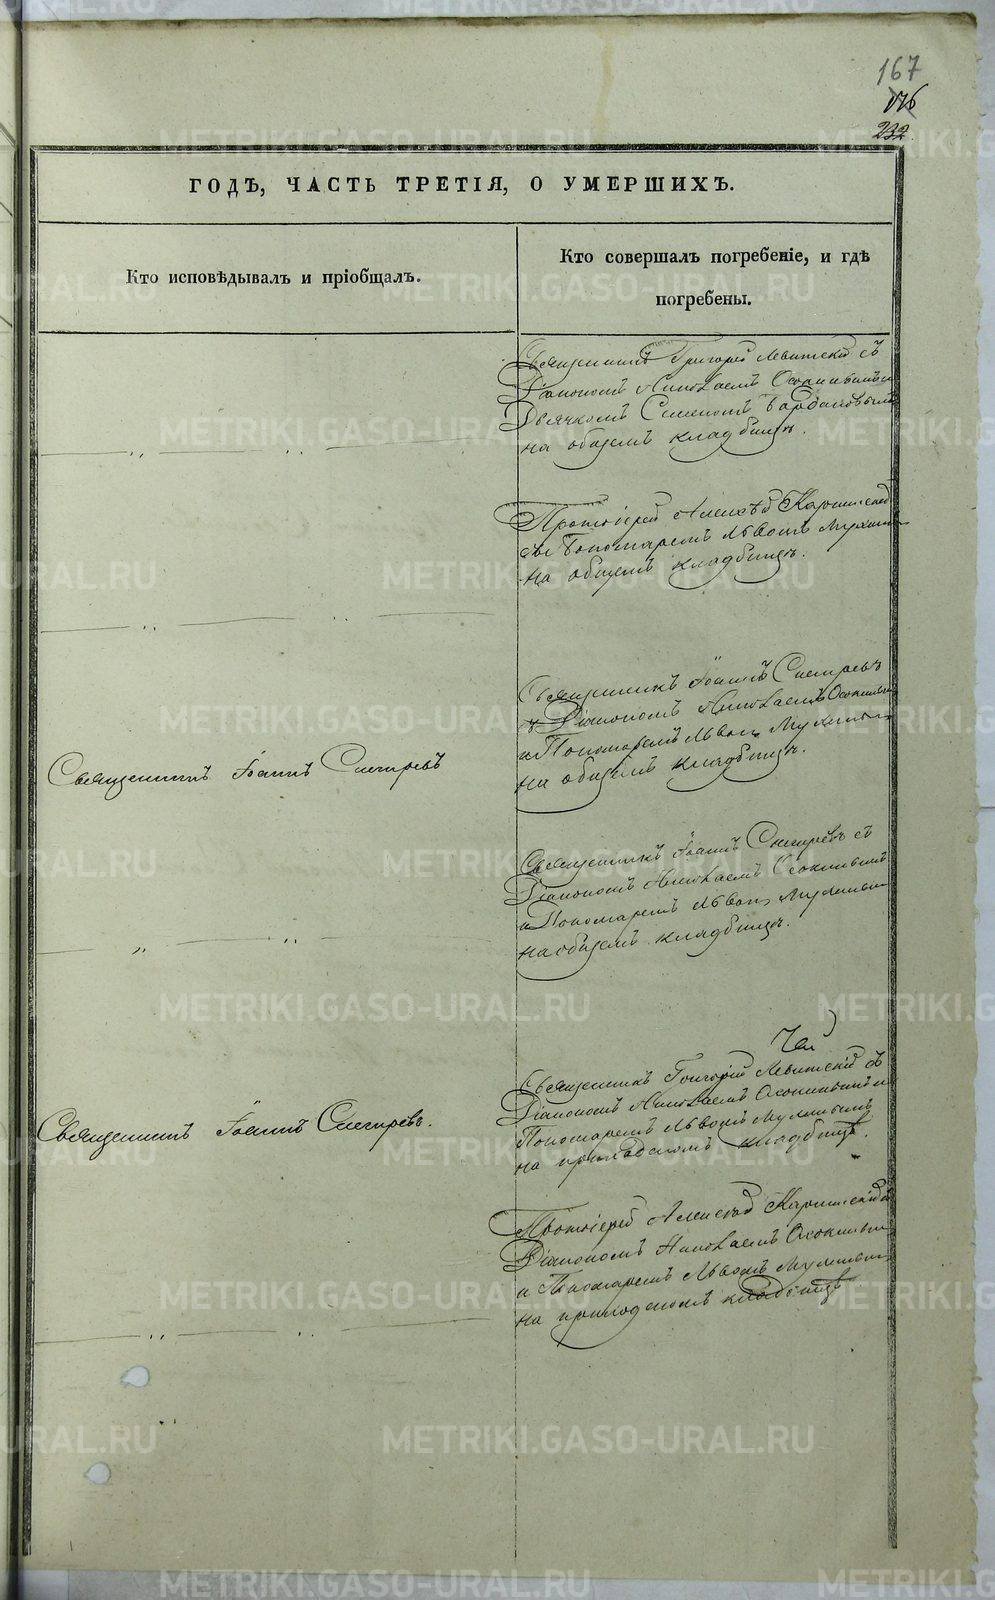 167
176
232
ГОДЪ, ЧАСТЬ ТРЕТІЯ, О УМЕРШИХЪ.
Кто исповѣдывалъ и пріобщалъ.
Кто совершалъ погребеніе, и гдѣ
погребены.
Священникъ Григорій Левитскій съ
Діакономъ Николаемъ Осокинымъ и
Дьячкомъ Симеономъ
на общемъ кладбищѣ.
Протоіерей Алексѣй Карпинскій
съ Пономаремъ Львомъ
на общемъ кладбищѣ.
Священникъ Іоаннъ
съ Діакономъ Николаемъ Осокинымъ
и Пономаремъ Львомъ
на общемъ кладбищѣ.
Священникъ Іоаннъ
Священникъ Іоаннъ съ
Діакономъ Николаемъ Осокинымъ
и Пономаремъ Львомъ
на общемъ кладбищѣ.
Священникъ Григорій Левитскій съ
Діакономъ Николаемъ Осокинымъ и
Пономаремъ Львомъ
на приходскомъ кладбищѣ.
Священникъ Іоаннъ
Протоіерей Алексѣй Карпинскій съ
Діакономъ Николаемъ Осокинымъ
и Пономаремъ Львомъ
на приходскомъ кладбищѣ
METRIKI.GASO-URAL.RU